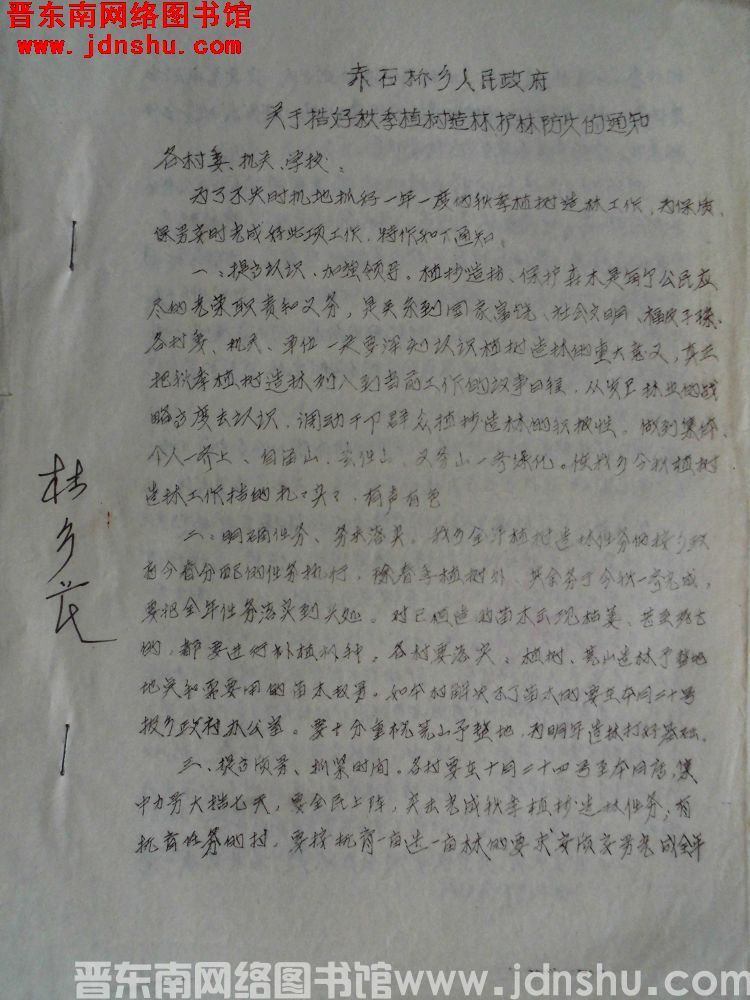 晋东南网络图书馆
www.jdnshu.com
赤石桥乡人民政府
关于搞好秋季植树造林护林防火的通知
各村委、机关、学校:
为了不失时机地抓好一年一度的秋季植树造林工作,为保质、
保量按时完成好此项工作,特作如下通知。
一、提高认识、加强领导。植树造林、保护森木是每个公民应
尽的光荣职责和义务,是关系到国家富饶、社会文明、
各村委、机关、单位一定要深刻认识植树造林的重大意义,真正
把秋季植树造林列入到当前工作的议事日程,从发展林业的战
略高度去认识,调动干下群众植树造林的积极性,做到集体、
个人一齐上、自留山、责任山、义务山一齐绿化。使我乡今秋植树
造林工作搞的扎扎实实,有声有色
二、明确任务、务求落实。我乡全年植树造林任务仍按乡政
府今春分配的任务执行,除春季植树外,其余务于今秋一齐完成,
要把全年任务落实到实处。对已植造的苗木出现枯萎、甚至死亡
的,都要进行补植补种。各村要落实:植树、荒山造林予整地
地块和需要用的苗木数量。如本村解决不了苗木的要在本月二十号
报乡政府办公室。要十分重视荒山予整地,为明年造林打好基础。
三、提高质量、抓紧时间。各村要在十月二十四号至本月底,集
中力量大搞七天,要全民上阵,突击完成秋季植树造林任务,有
抚育任务的村,要按抚育一亩造一亩林的要求 完成全年
林乡茂
晋东南网络图书馆www.jdnshu.com